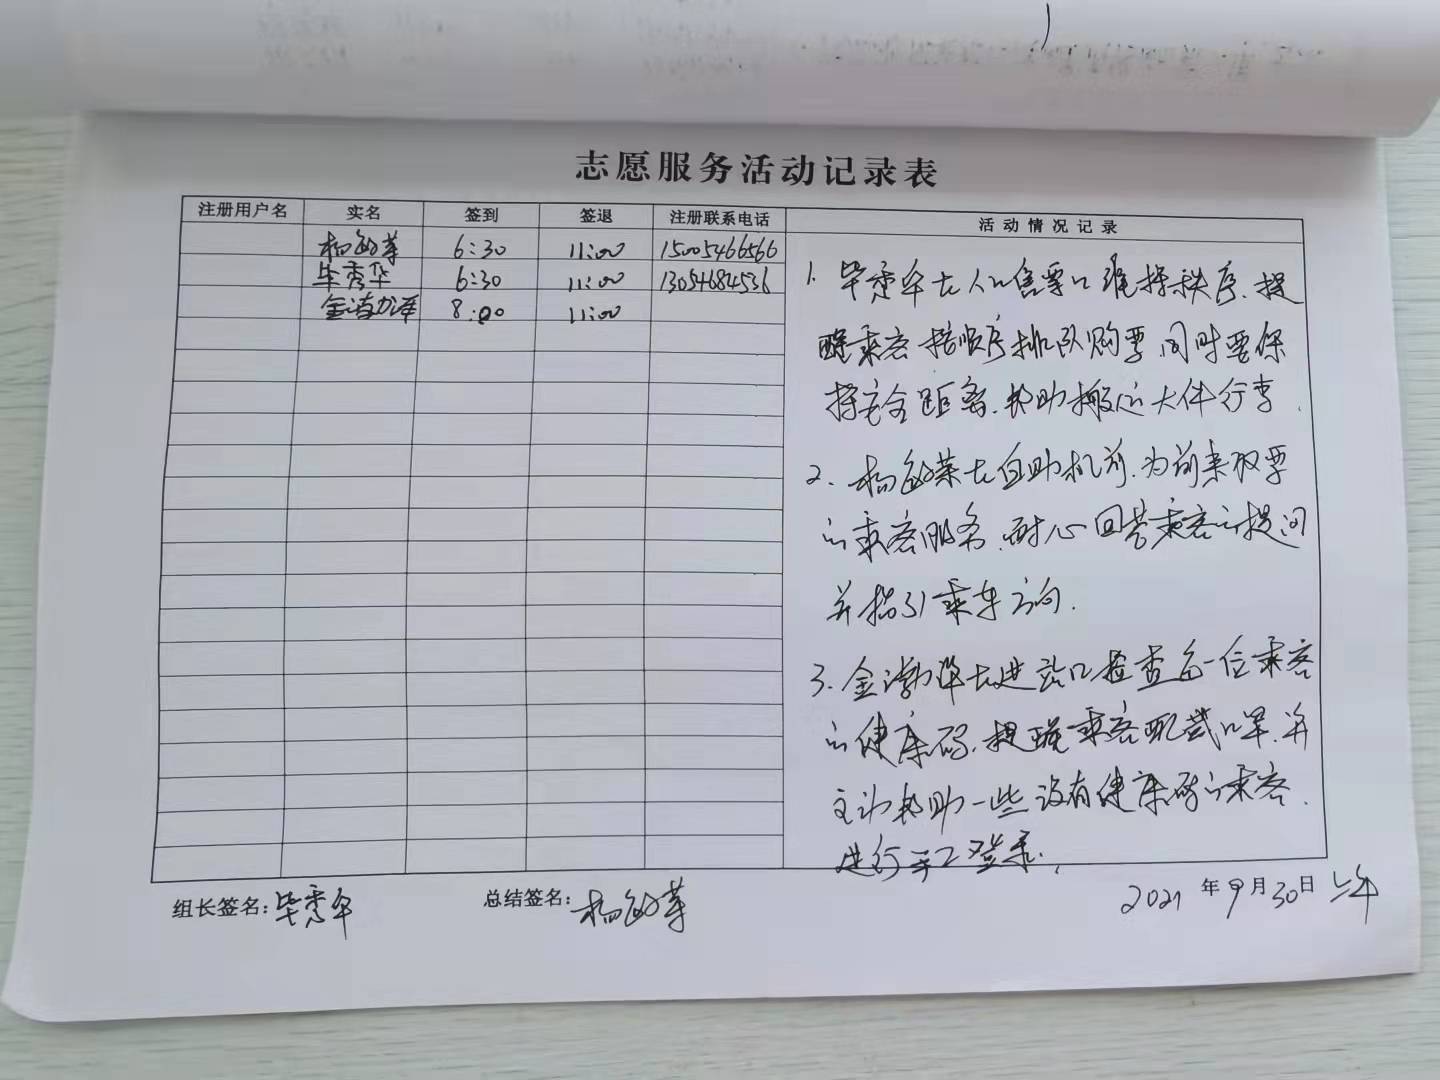 志愿服务活动记录表
注册用户名 实名 签到 签退 注册联系电话 活动情况记录
杨 6:30 11:00 15005466566
毕秀华 6:30 11:00 13054684536
金渤泽 8:00 11:00
1. 毕秀华在人口售票口维持秩序、提
醒乘客按顺序排队购票,同时要保
持安全距离、协助搬运大件行李.
2. 杨在自助机前,为前来取票
的乘客服务,耐心回答乘客的提问
并指引乘车方向.
3. 金渤泽在进站口检查每一位乘客
的健康码,提醒乘客配戴口罩,并
主动协助一些没有健康码的乘客.
进行手工登录.
组长签名:毕秀华 总结签名:杨 2021年9月30日上午